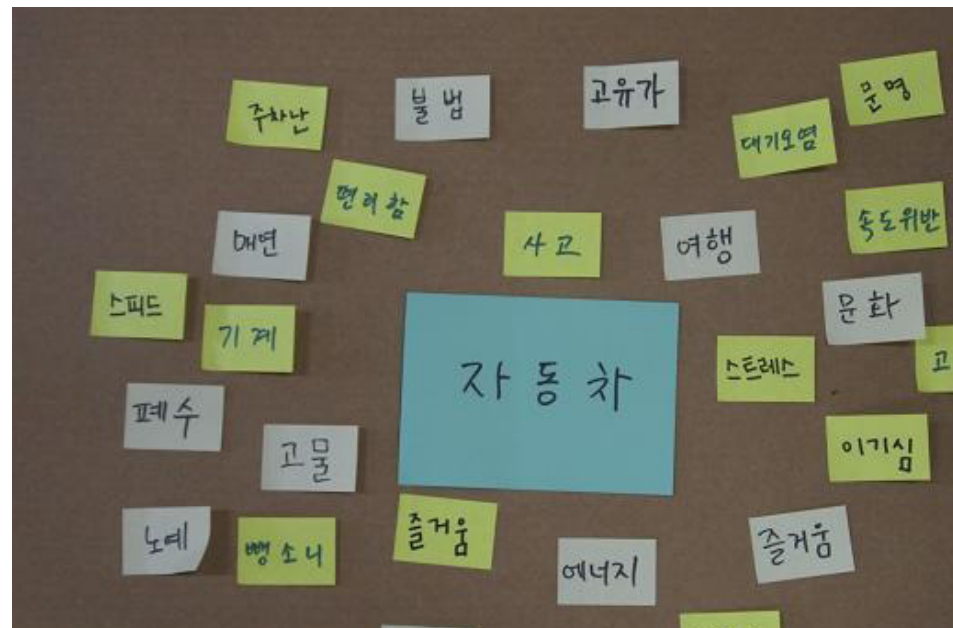 주차난
불법
고유가
문명
대기오염
편리함
속도위반
매연
사고
여행
스피드
기계
문화
자동차
스트레스
고
폐수
고물
이기심
노예
뺑소니
즐거움
에너지
즐거움